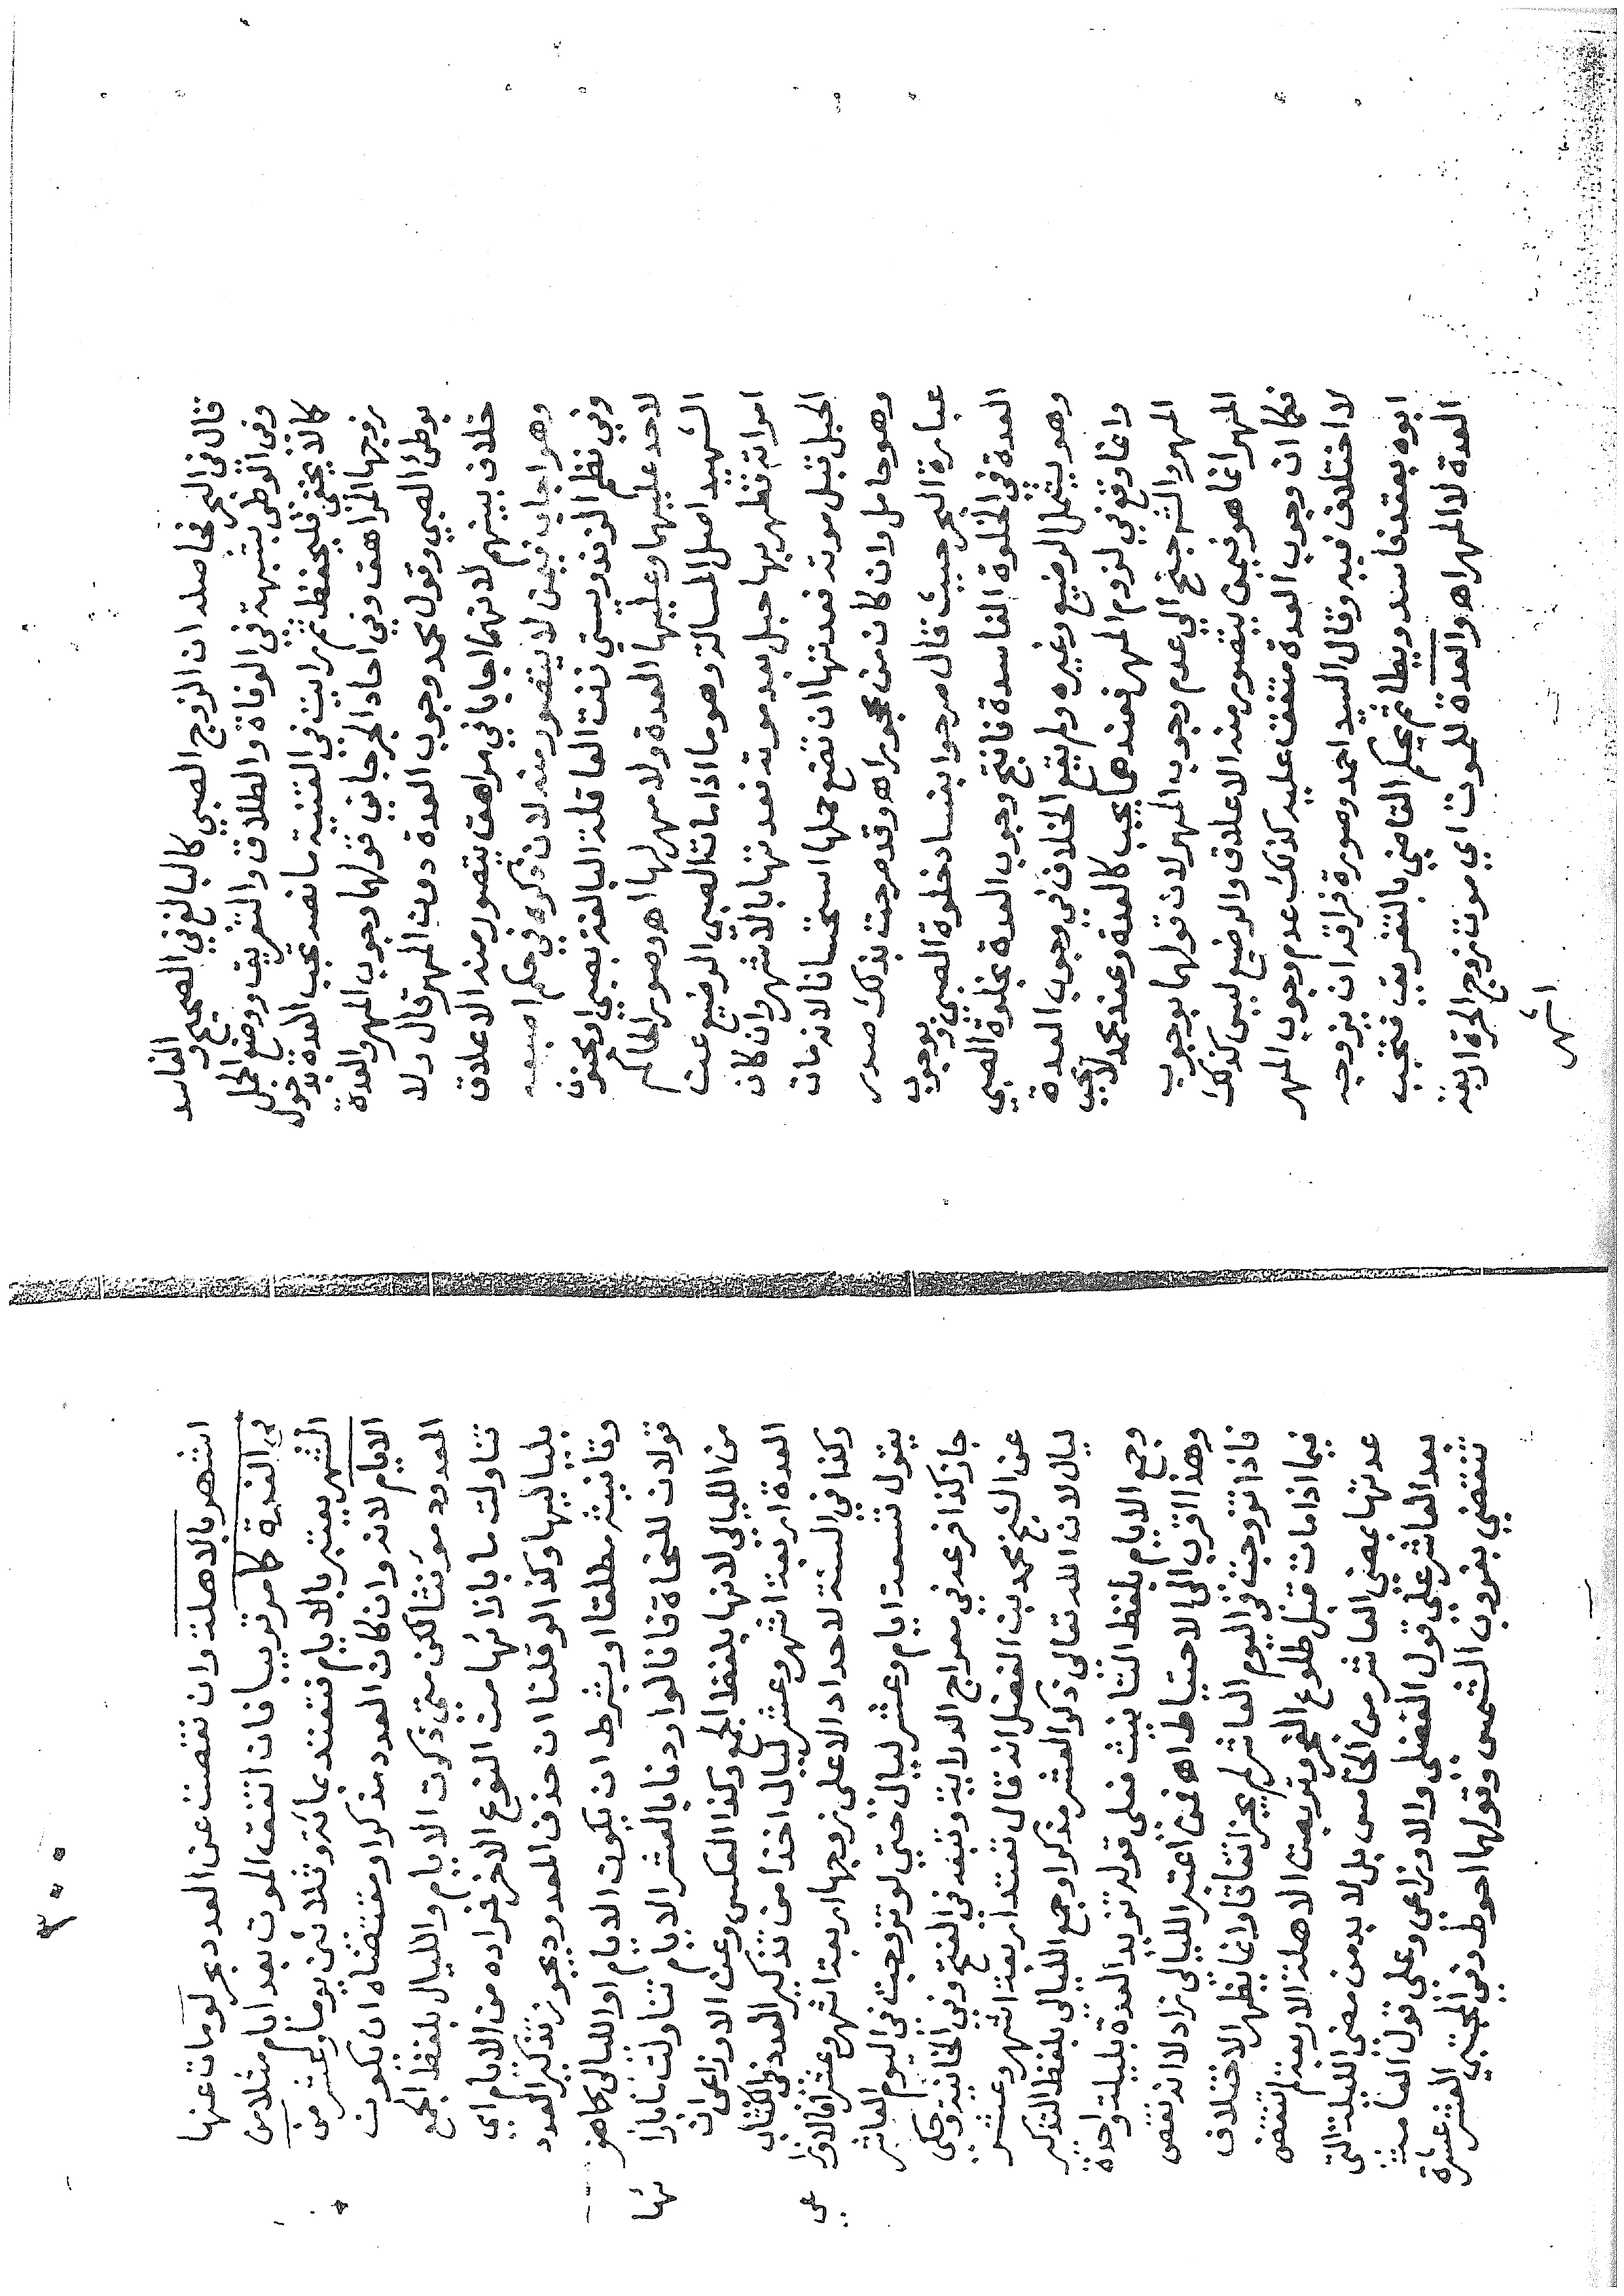 قال في البحر فحاصله ان الزوج الصبي كالبالغ في الصحيح والفاسد
وفي الوطئ بشبهة في الوفاة والطلاق والتفريق ووضع الحمل
كما لا يخفي فليحفظ ثم رايت في القنية ما نصه تجب العدة بدخول
زوجها المراهق وفي احاد الجرجاني قولهما وجوب المهر والعدة
بوطئ الصبي وقول محمد وجوب العدة دون المهر قال ولا
خلاف بينهم لانهما اجابا في مراهق يتصور منه الاعلاق
وهو اجاب فيمن لا يتصور منه لان ذكره في حكم اصبعه
وفي نظم الزندويستي زنت العاقلة البالغة بصبي او مجنون
لاحد عليهما وعليها العدة ولا مهر لها اهـ وصور الحاكم
الشهيد اصل المسالة وهو ما اذا مات الصبي الرضيع عن
امراته تظهر بها حبل بعد موته فعدتها بالاشهر وان كان
الحبل قبل موته فعدتها ان تضع حملها استحسانا لانه مات
وهو حامل وان كان من فجور اهـ وقد صرحت بذلك صدر
عبارة البحر حيث قال مرجوا بفساد خلوة الصبي وبوجوب
العدة في الخلوة الفاسدة فانتج وجوب العدة بخلوة الصبي
وهو يشمل الرضيع وغيره ولم يقع الخلاف في وجوب العدة
وانما وقع في لزوم المهر فعندهما يجب كالعدة وعند محمد لا يجب
المهر والشرجنح الي عدم وجوب المهر لان قولهما بوجوب
المهر انما هو فيمن يتصور منه الاعلاق والرضيع ليس كذلك
فكما ان وجوب العدة متفق عليه كذلك عدم وجوب المهر
لا اختلاف فيه وقال السيد احمد وصورة فراقه ان يزوجه
ابوه بعقد فاسد ويطا ثم يحكم القاضي بالتفريق فتجب
العدة لا المهر اهـ والعدة للموت اي موت زوج الحرة اربعة
اشهر
اشهر بالاهلة وان نقصت عن العدد بحر لو مات عنها
في الغرة كما مر قريبا فان اتفق الموت بعد ايام مثلا من
الشهر يعتبر بالايام فتعتد بمائة وثلاثين يوما وعشر من
الايام لانه وان كان العدد مذكرا ومقتضاه ان يكون
المعدود مؤنثا لكن متي ذكرت الايام والليال بلفظ الجمع
تناولت ما بازائها من النوع الاخر فراده من الايام اي
بلياليها وكذا لو قلنا ان حذف المعدود يجوز تذكير العدد
وتانيثه مطلقا او بشرط ان يكون الايام او الليالي كما هو
قولان للنحاة فانا لو اردنا بالعشر الايام تناولت ما بازا
ئها
من الليالي لانها بلفظ الجمع وكذا العكس وعن الاوزاعي ان
العدة اربعة اشهر وعشر ليال اخذا من تذكير العدد في الكتاب
وكذا في السنة لاحداد الاعلي زوجها اربعة اشهر وعشرا فالاوزا
عي
يقول تسعة ايام وعشر ليال حتي لو تزوجت في اليوم العاشر
جاز كذا فرعه في معراج الدراية وتبعه في الفتح وفي الخانية وحكي
عن الشيخ محمد بن الفضل انه قال تعتد اربعة اشهر وعشر
ليال لان الله تعالى ذكر العشر مذكرا وجمع الليالي بلفظ التذكير
وجمع الايام بلفظ التانيث فعلي قوله تزيد العدة بليلة واحدة
وهذا اقرب الي الاحتياط اهـ فمن اعتبر الليالي زاد لا انه نقص
فاذا تزوجت في اليوم العاشر لم يجز اتفاقا وانما يظهر الاختلاف
فيما اذا مات قبل طلوع الفجر وتربصت الاهلة الاربعة لم تنقض
عدتها بمضي العاشر من الخامس بل لا بد من مضي الليلة التي
بعد العاشر علي قول الفضلي والاوزاعي وعلي قول العامة
تنقضي بغروب الشمس وقولهما احوط وفي المجتبي العشر عشرة